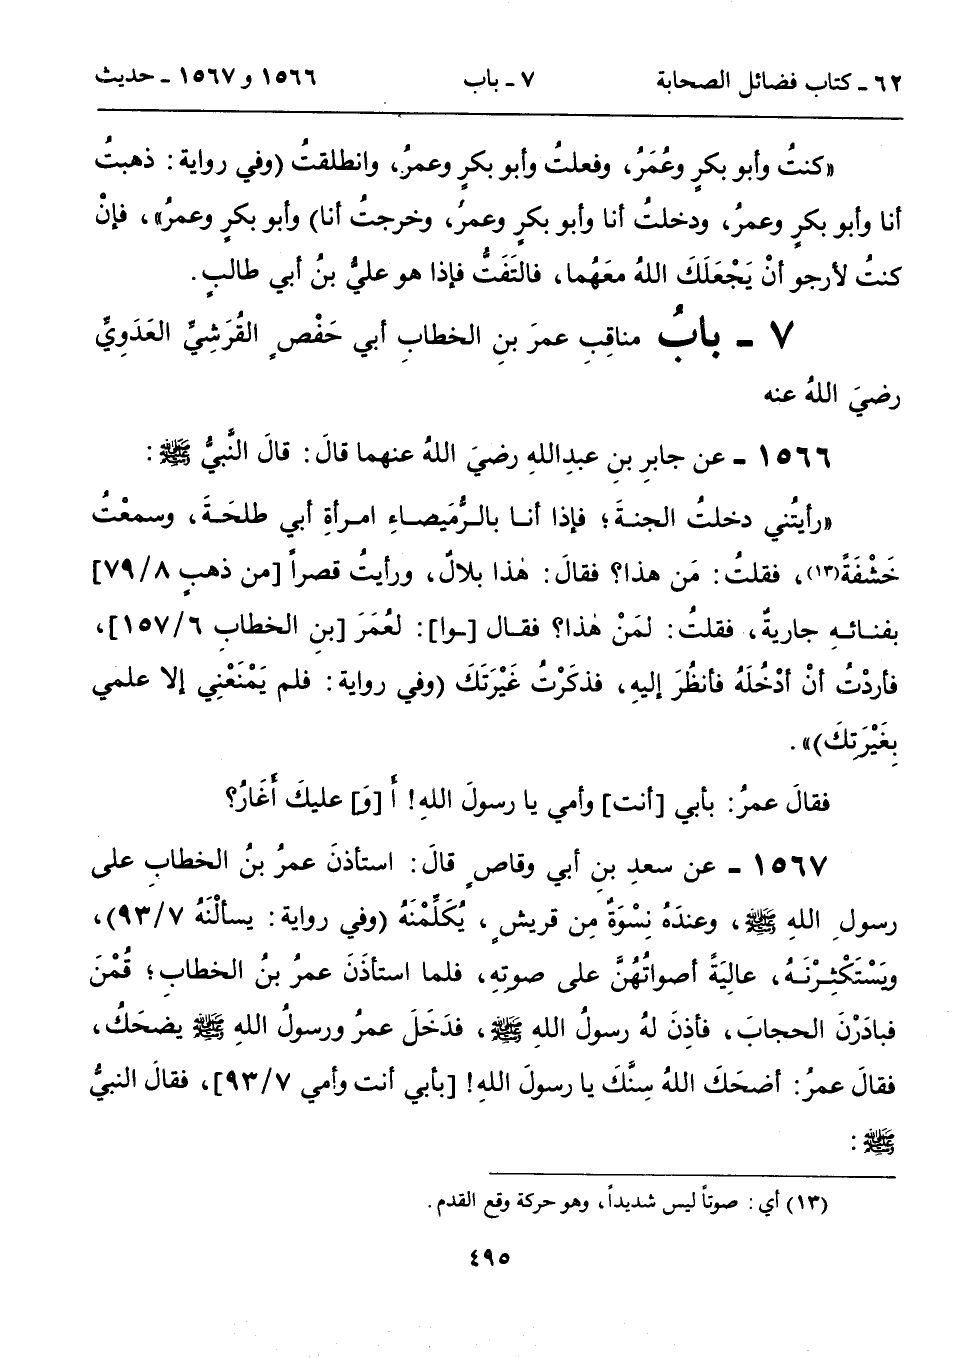 ٦٢ ـ كتاب فضائل الصحابة ٧ ـ باب ١٥٦٦ و ١٥٦٧ ـ حديث
«كنتُ وأبو بكرٍ وعُمَرُ، وفعلتُ وأبو بكرٍ وعمرُ، وانطلقتُ (وفي رواية: ذهبتُ
أنا وأبو بكرٍ وعمرُ، ودخلتُ أنا وأبو بكرٍ وعمرُ، وخرجتُ أنا) وأبو بكرٍ وعمرُ»، فإنْ
كنتُ لأرجو أنْ يَجْعَلَكَ اللهُ معَهُما، فالتَفَتُّ فإذا هو عليُّ بنُ أبي طالبٍ.
٧ ـ بابُ مناقِبِ عمرَ بنِ الخطابِ أبي حَفْصٍ القُرَشِيِّ العَدَوِيِّ
رضيَ اللهُ عنه
١٥٦٦ ـ عن جابرِ بنِ عبدِاللهِ رضيَ اللهُ عنهما قالَ: قالَ النَّبيُّ ﷺ:
«رأيتُني دخلتُ الجنةَ؛ فإذا أنا بالرُّمَيصاءِ امرأةِ أبي طلحَةَ، وسمعْتُ
خَشْفَةً(١٣)، فقلتُ: مَن هذا؟ فقالَ: هٰذا بلالٌ، ورأيتُ قصراً [من ذهبٍ ٧٩/٨]
بفنائهِ جاريةٌ، فقلتُ: لمَنْ هٰذا؟ فقال [ـوا]: لعُمَرَ [بن الخطابِ ١٥٧/٦]،
فأردْتُ أنْ أدْخُلَهُ فأنظُرَ إليهِ، فذكَرْتُ غَيْرَتَكَ (وفي رواية: فلم يَمْنَعْنِي إلا علمي
بِغَيْرَتِكَ)».
فقالَ عمرُ: بأبي [أنت] وأمي يا رسولَ اللهِ! أَ [وَ] عليكَ أَغَارُ؟
١٥٦٧ ـ عن سعدِ بنِ أبي وقاصٍ قالَ: استأذنَ عمرُ بنُ الخطابِ على
رسولِ اللهِ ﷺ، وعندَهُ نِسْوَةٌ مِن قريشٍ، يُكَلِّمْنَهُ (وفي رواية: يسألْنَهُ ٩٣/٧)،
ويَسْتَكْثِرْنَهُ، عالِيَةً أصواتُهُنَّ على صوتِهِ، فلما استأذَنَ عمرُ بنُ الخطابِ؛ قُمْنَ
فبادَرْنَ الحجابَ، فأذِنَ لهُ رسولُ اللهِ ﷺ، فدَخَلَ عمرُ ورسولُ اللهِ ﷺ يضحَكُ،
فقالَ عمرُ: أضحَكَ اللهُ سِنَّكَ يا رسولَ اللهِ! [بأبي أنت وأمي ٩٣/٧]، فقالَ النبيُّ
ﷺ:
(١٣) أي: صوتاً ليس شديداً، وهو حركة وقع القدم.
٤٩٥